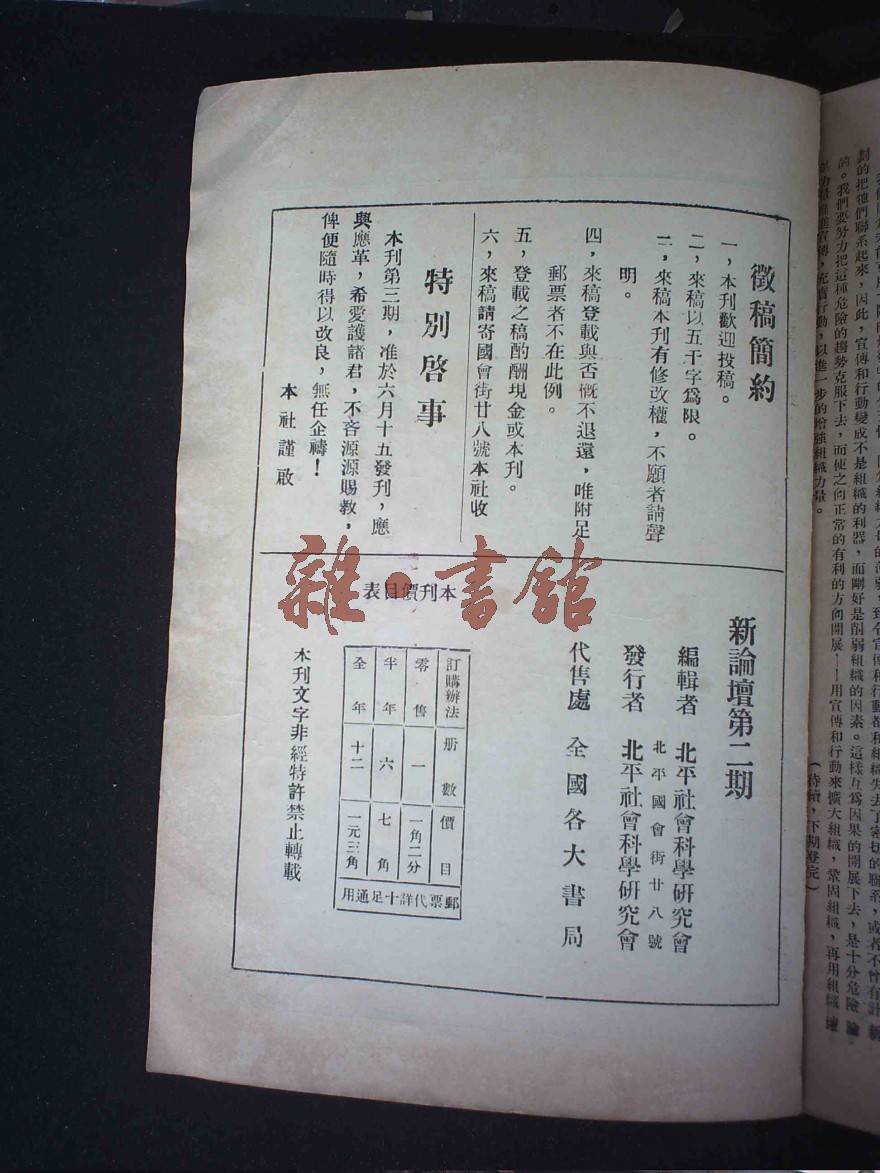 徵稿簡約
一，本刊歡迎投稿。
二，來稿以五千字爲限。
三，來稿本刊有修改權，不願者請聲
明。
四，來稿登載與否慨不退還，唯附足
郵票者不在此例。
五，登載之稿酌酬現金或本刊。
六，來稿請寄國會街廿八號本社收
特別啓事
本刊第三期，准於六月十五發刊，應
興應革，希愛護諸君，不吝源源賜教，
俾便隨時得以改良，無任企禱！
本社謹啟
新論壇第二期
編輯者 北平社會科學研究會
北平國會街廿八號
發行者 北平社會科學研究會
代售處 全國各大書局
本刊價目表
訂購辦法 册數 價目
零售 一 一角二分
半年 六 七角
全年 十二 一元三角
郵票代詳十足通用
本刊文字非經特許禁止轉載
雜·書館
劃的把牠們聯系起來，因此，宣傳和行動變成不是組織的利器，而剛好是削弱組織的因素。這樣互爲因果的開展下去，是十分危險
的。我們要努力把這種危險的趨勢克服下去，而使之向正常的有利的方向開展——用宣傳和行動來擴大組織，鞏固組織，再用組織
以進一步的增強組織力量。
（待續，下期登完）